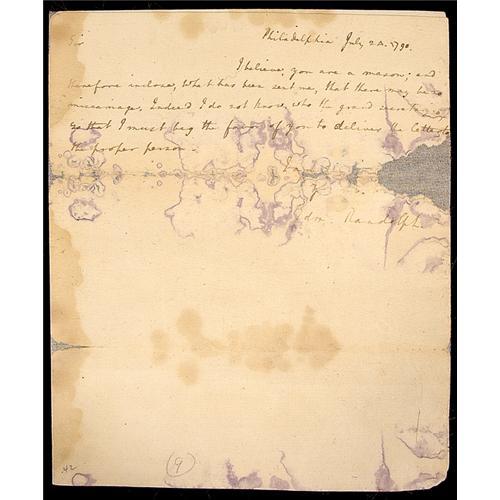 Sir
Philadelphia July 24. 1790.
I believe, you are a mason; and
therefore inclose, what has been sent me, that there may be no
miscarriage. Indeed I do not know, who the grand secretary is;
so that I must beg the favor of you to deliver the letter to
the proper person.
Edm. Randolph
42
9